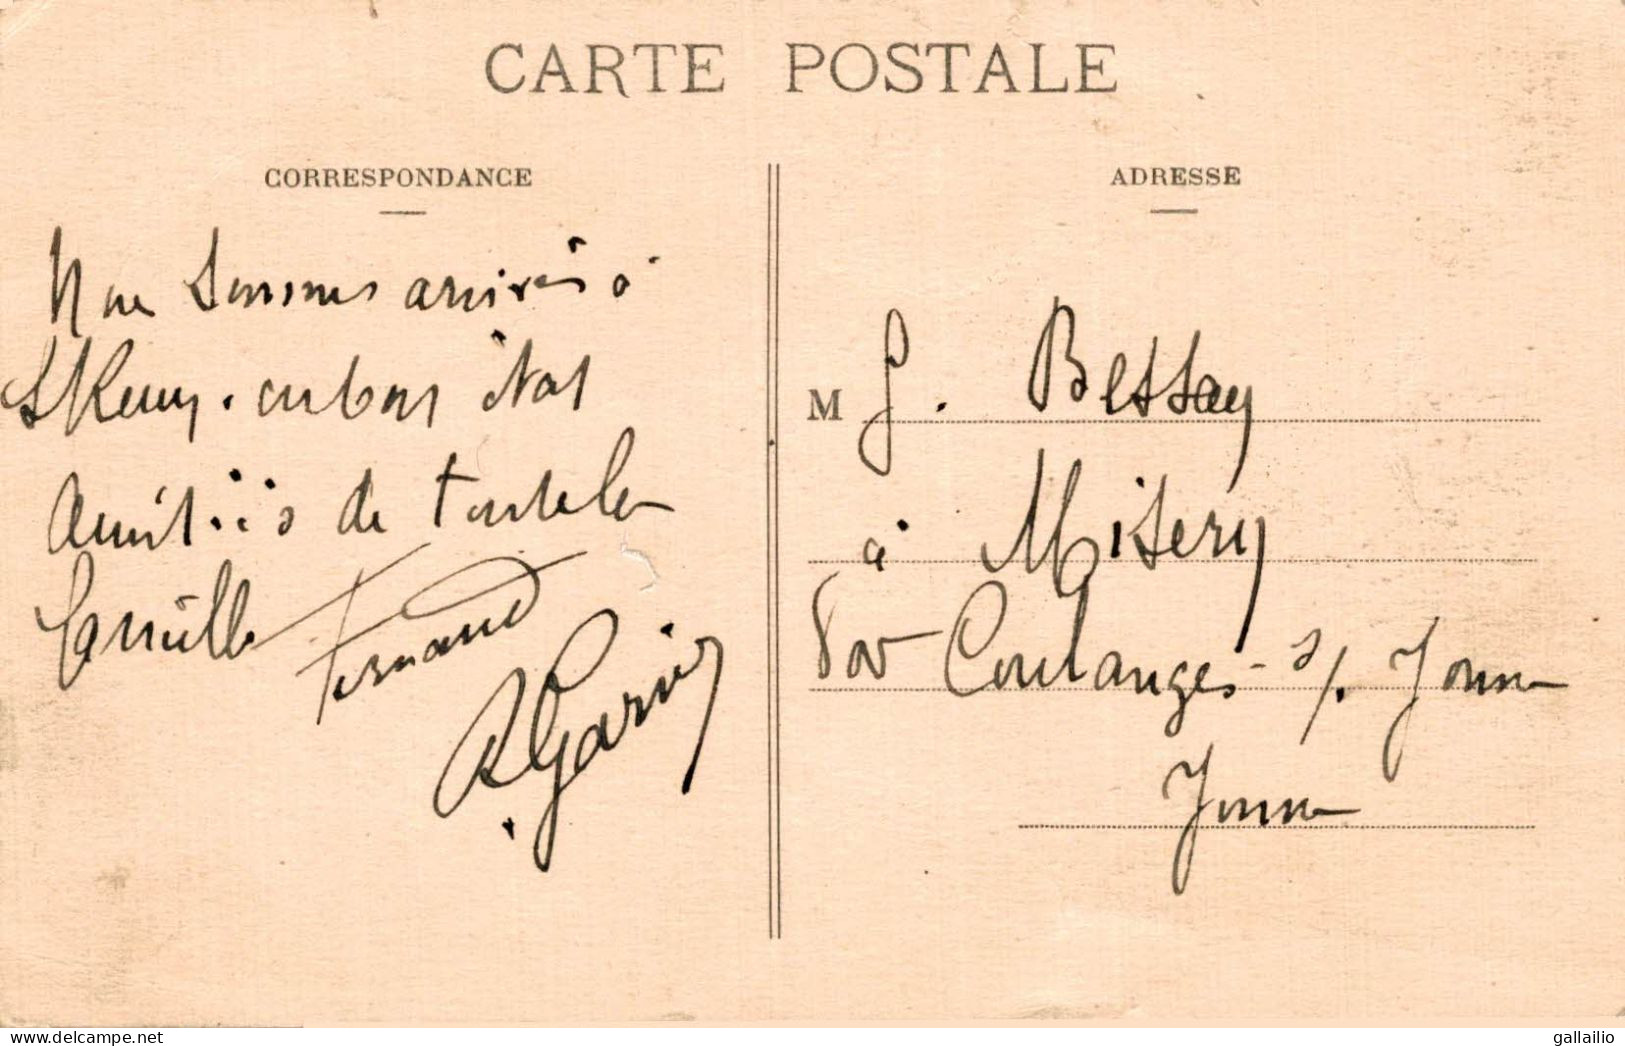 CARTE POSTALE
CORRESPONDANCE
Nous sommes arrivés à
St Remy. en bon état
Amitiés de toute la
famille Fernand
R Garnier
ADRESSE
M G. Bessay
à Misery
par Coulanges s/. Yonne
Yonne
www.delcampe.net
gallailio